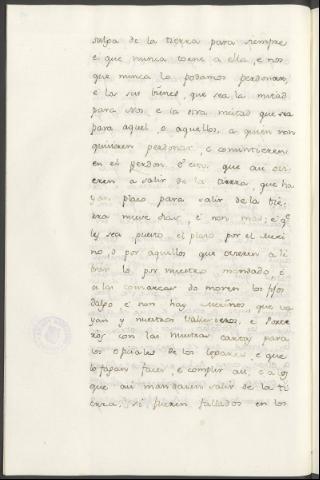 salga de la tierra para siempre
e que nunca torne a ella, e nos
que nunca lo podamos perdonar,
e los sus bienes, que sea la mitad
para Nos e la otra mitad que sea
para aquel, o aquellos, a quien non
quisieren perdonar, o consintieren
en el perdon. E estos que asi ovi
eren a salir de la tierra, que ha
yan plazo para salir de la tie
rra nueve dias, e non mas; e qe
les sea puesto el plazo por el Meri
no o por aquellos que ovieren a li
brar lo por nuestro mandado, e
a las comarcas do moren los fijos
dalgo e non hay Merinos que va
yan y nuestros Vallesteros, e Porte
ros con las nuestras cartas para
los oficiales de los logares, e que
lo fagan facer, e complir asi, e a los
que asi mandaren salir de la ti
erra, si fueren fallados en los